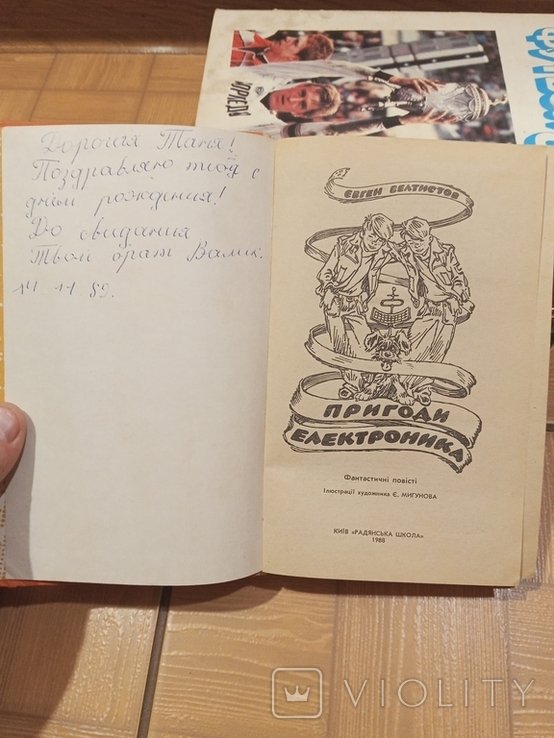 Дорогая Таня!
Поздравляю тебя с
днём рождения!
До свидания
Твой брат Валик.
14 11 89.
ЄВГЕН ВЕЛТИСТОВ
ПРИГОДИ
ЕЛЕКТРОНИКА
Фантастичні повісті
Ілюстрації художника Є. МИГУНОВА
КИЇВ «РАДЯНСЬКА ШКОЛА»
1988
VIOLITY